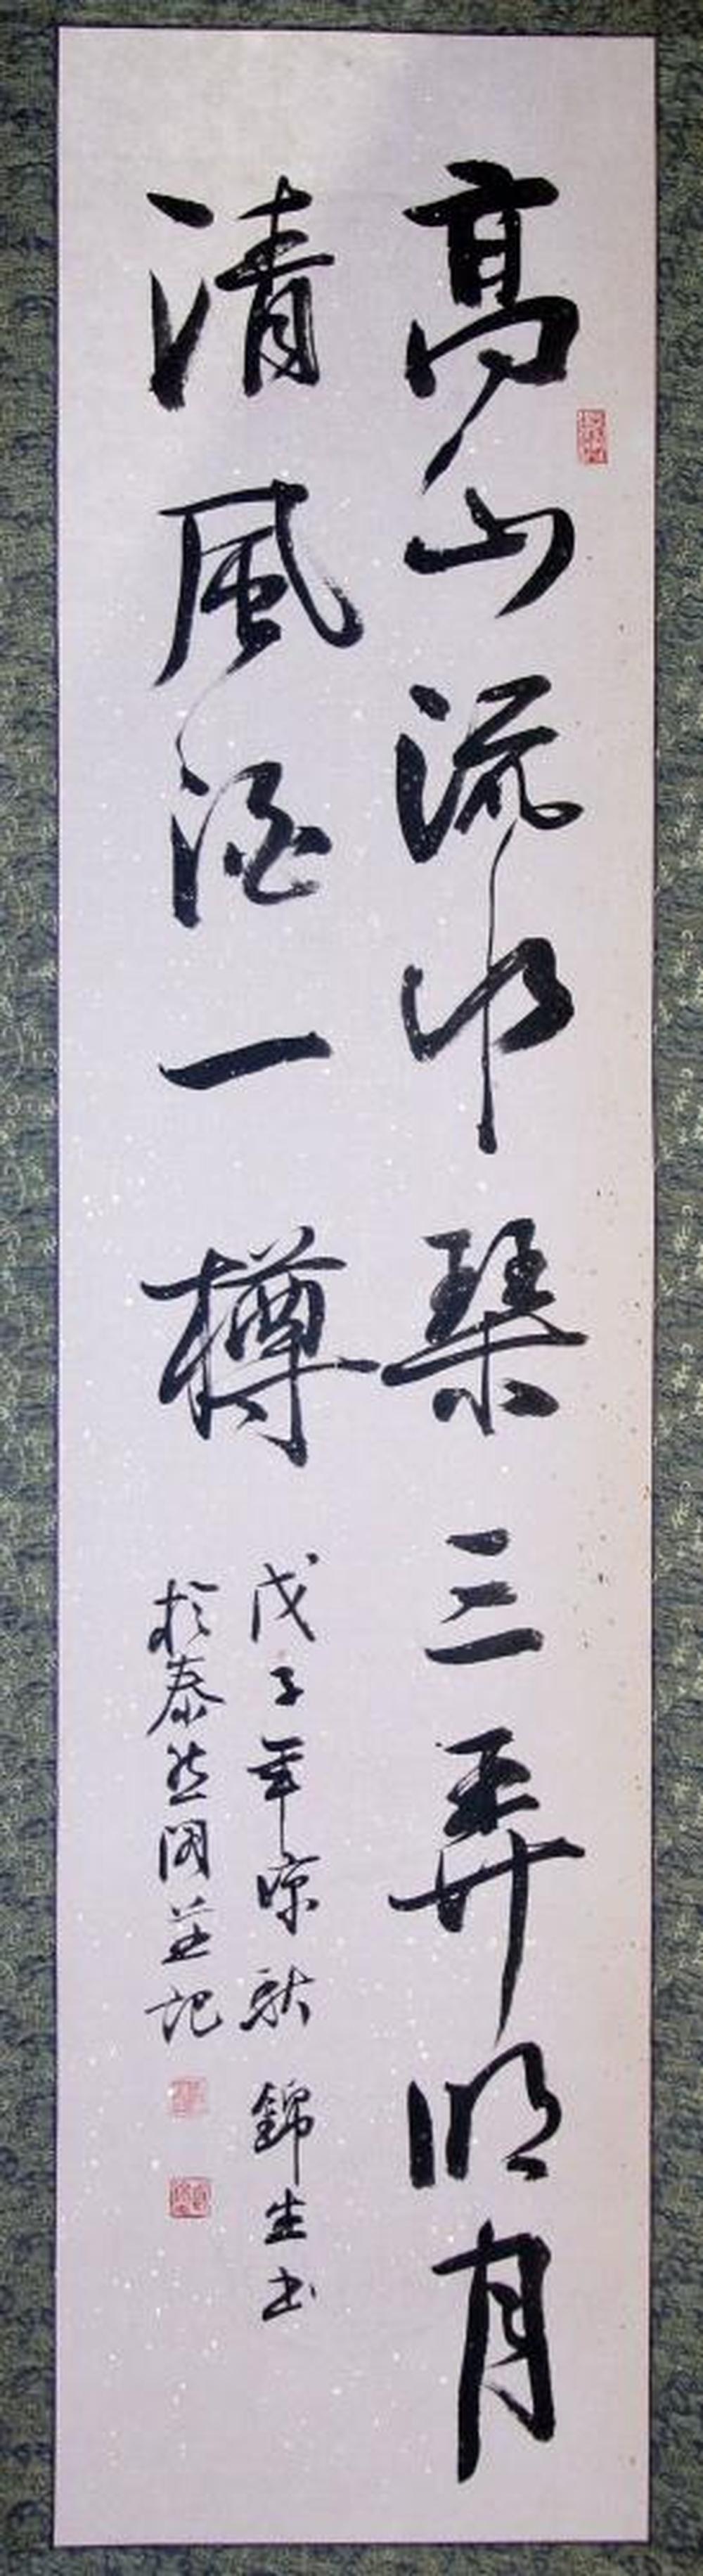 高山流水琴三弄明月
清風酒一樽
戊子年涼秋 錦生书
於泰然閣並記